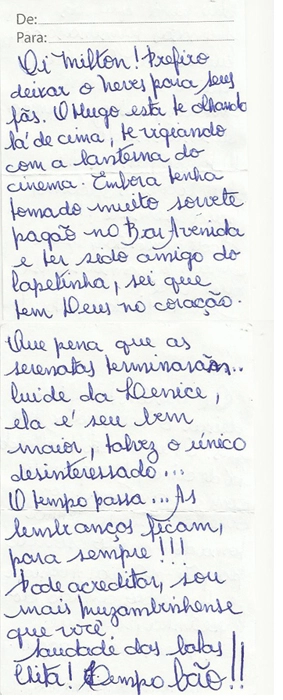 De:
Para:
Oi Milton! Prefiro
deixar o neves para seus
fãs. O Hugo está te olhando
lá de cima, te vigiando
com a lanterna do
cinema. Embora tenha
tomado muito sorvete
pagão no Bar Avenida
e ter sido amigo do
lapetinha, sei que
tem Deus no coração.
Que pena que as
serenatas terminaram..
Cuide da Lenice,
ela é seu bem
maior, talvez o único
desinteressado...
O tempo passa... As
lembranças ficam,
para sempre!!!
Pode acreditar, sou
mais muzambinhense
que você.
Saudade das balas
Chita! Tempo bão!!